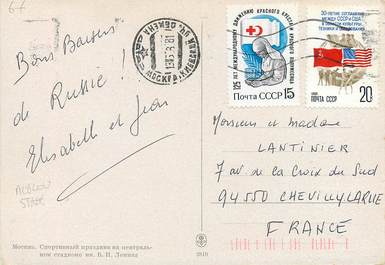 67
Bons Baisers
de Russie !
Elisabelle et Jean
MOSCOU
STADE
МОСКВА
125 ЛЕТ МЕЖДУНАРОДНОМУ ДВИЖЕНИЮ КРАСНОГО КРЕСТА И КРАСНОГО ПОЛУМЕСЯЦА
Почта СССР 15
30-ЛЕТИЕ СОГЛАШЕНИЯ
МЕЖДУ СССР И США
В ОБЛАСТИ КУЛЬТУРЫ,
ТЕХНИКИ И ОБРАЗОВАНИЯ
ПОЧТА СССР 20
Monsieur et Madame
LANTINIER
7 av. de la Croix du Sud
94550 CHEVILLY LARUE
FRANCE
Москва. Спортивный праздник на централь-
ном стадионе им. В. И. Ленина